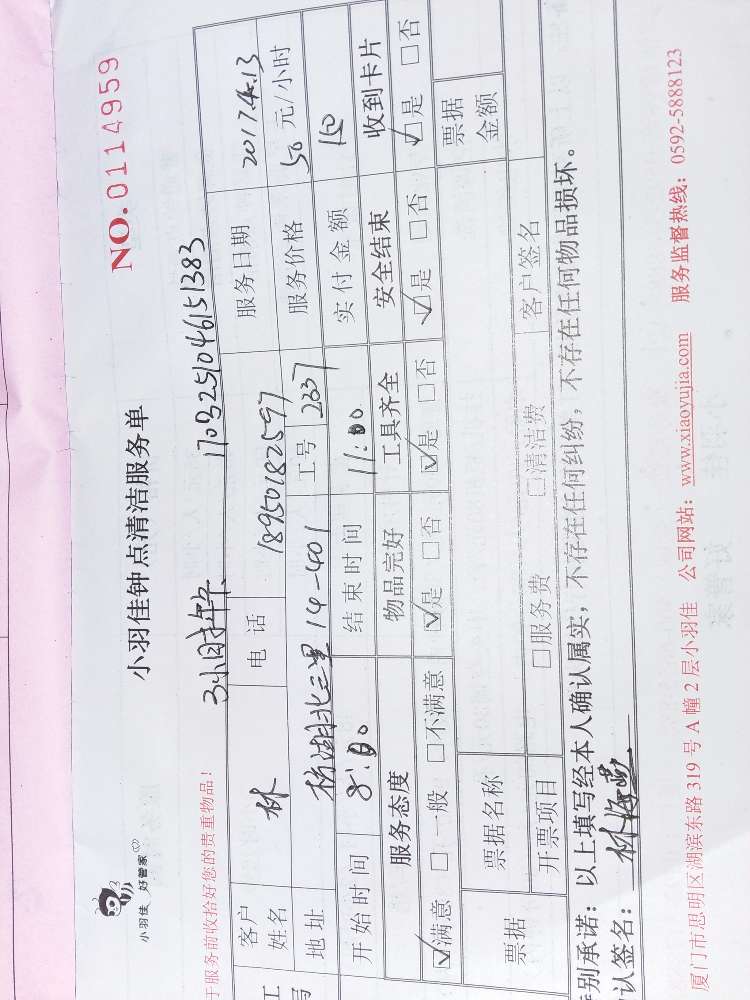 小羽佳 好管家
小羽佳钟点清洁服务单
NO.0114959
于服务前收拾好您的贵重物品！
3小时 1703251046151383
客户姓名 林 电话 18950182597 服务日期 2017.4.13
地址 湖北三里 14-401 工号 2337 服务价格 50 元/小时
开始时间 8:00 结束时间 11:00 实付金额
服务态度 物品完好 工具齐全 安全结束 收到卡片
☑满意 □一般 □不满意 ☑是 □否 ☑是 □否 ☑是 □否 ☑是 □否
票据 票据名称 票据金额
开票项目 □服务费 □清洁费 客户签名
别承诺：以上填写经本人确认属实，不存在任何纠纷，不存在任何物品损坏。
认签名：林海燕
厦门市思明区湖滨东路 319 号 A 幢 2 层小羽佳 公司网站：www.xiaoyujia.com 服务监督热线：0592-5888123